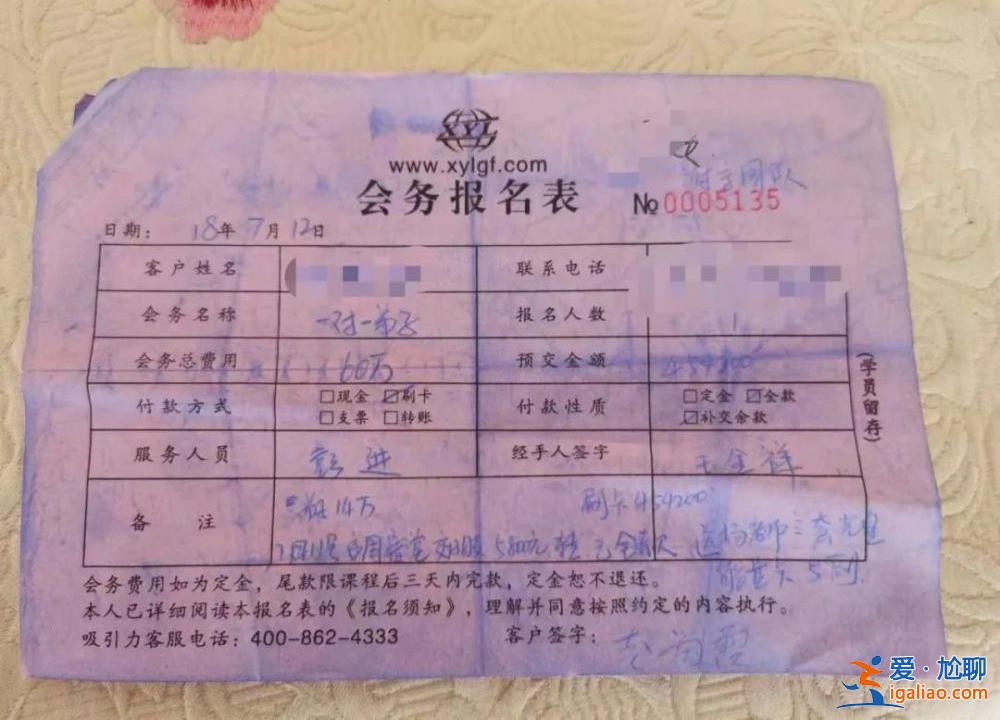 XYL
www.xylgf.com
会务报名表
团队
№0005135
日期： 18年 7月 12日
客户姓名 联系电话
会务名称 一对一弟子 报名人数 1
会务总费用 60万 预交金额 454200
付款方式 □现金 ☑刷卡 □支票 □转账 付款性质 □定金 ☑全款 ☑补交余款
服务人员 彭进 经手人签字 王全祥
备注 14万 刷卡454200
(学员留存)
会务费用如为定金，尾款限课程后三天内完款，定金恕不退还。
本人已详细阅读本报名表的《报名须知》，理解并同意按照约定的内容执行。
吸引力客服电话：400-862-4333 客户签字：
爱·尬聊
igaliao.com